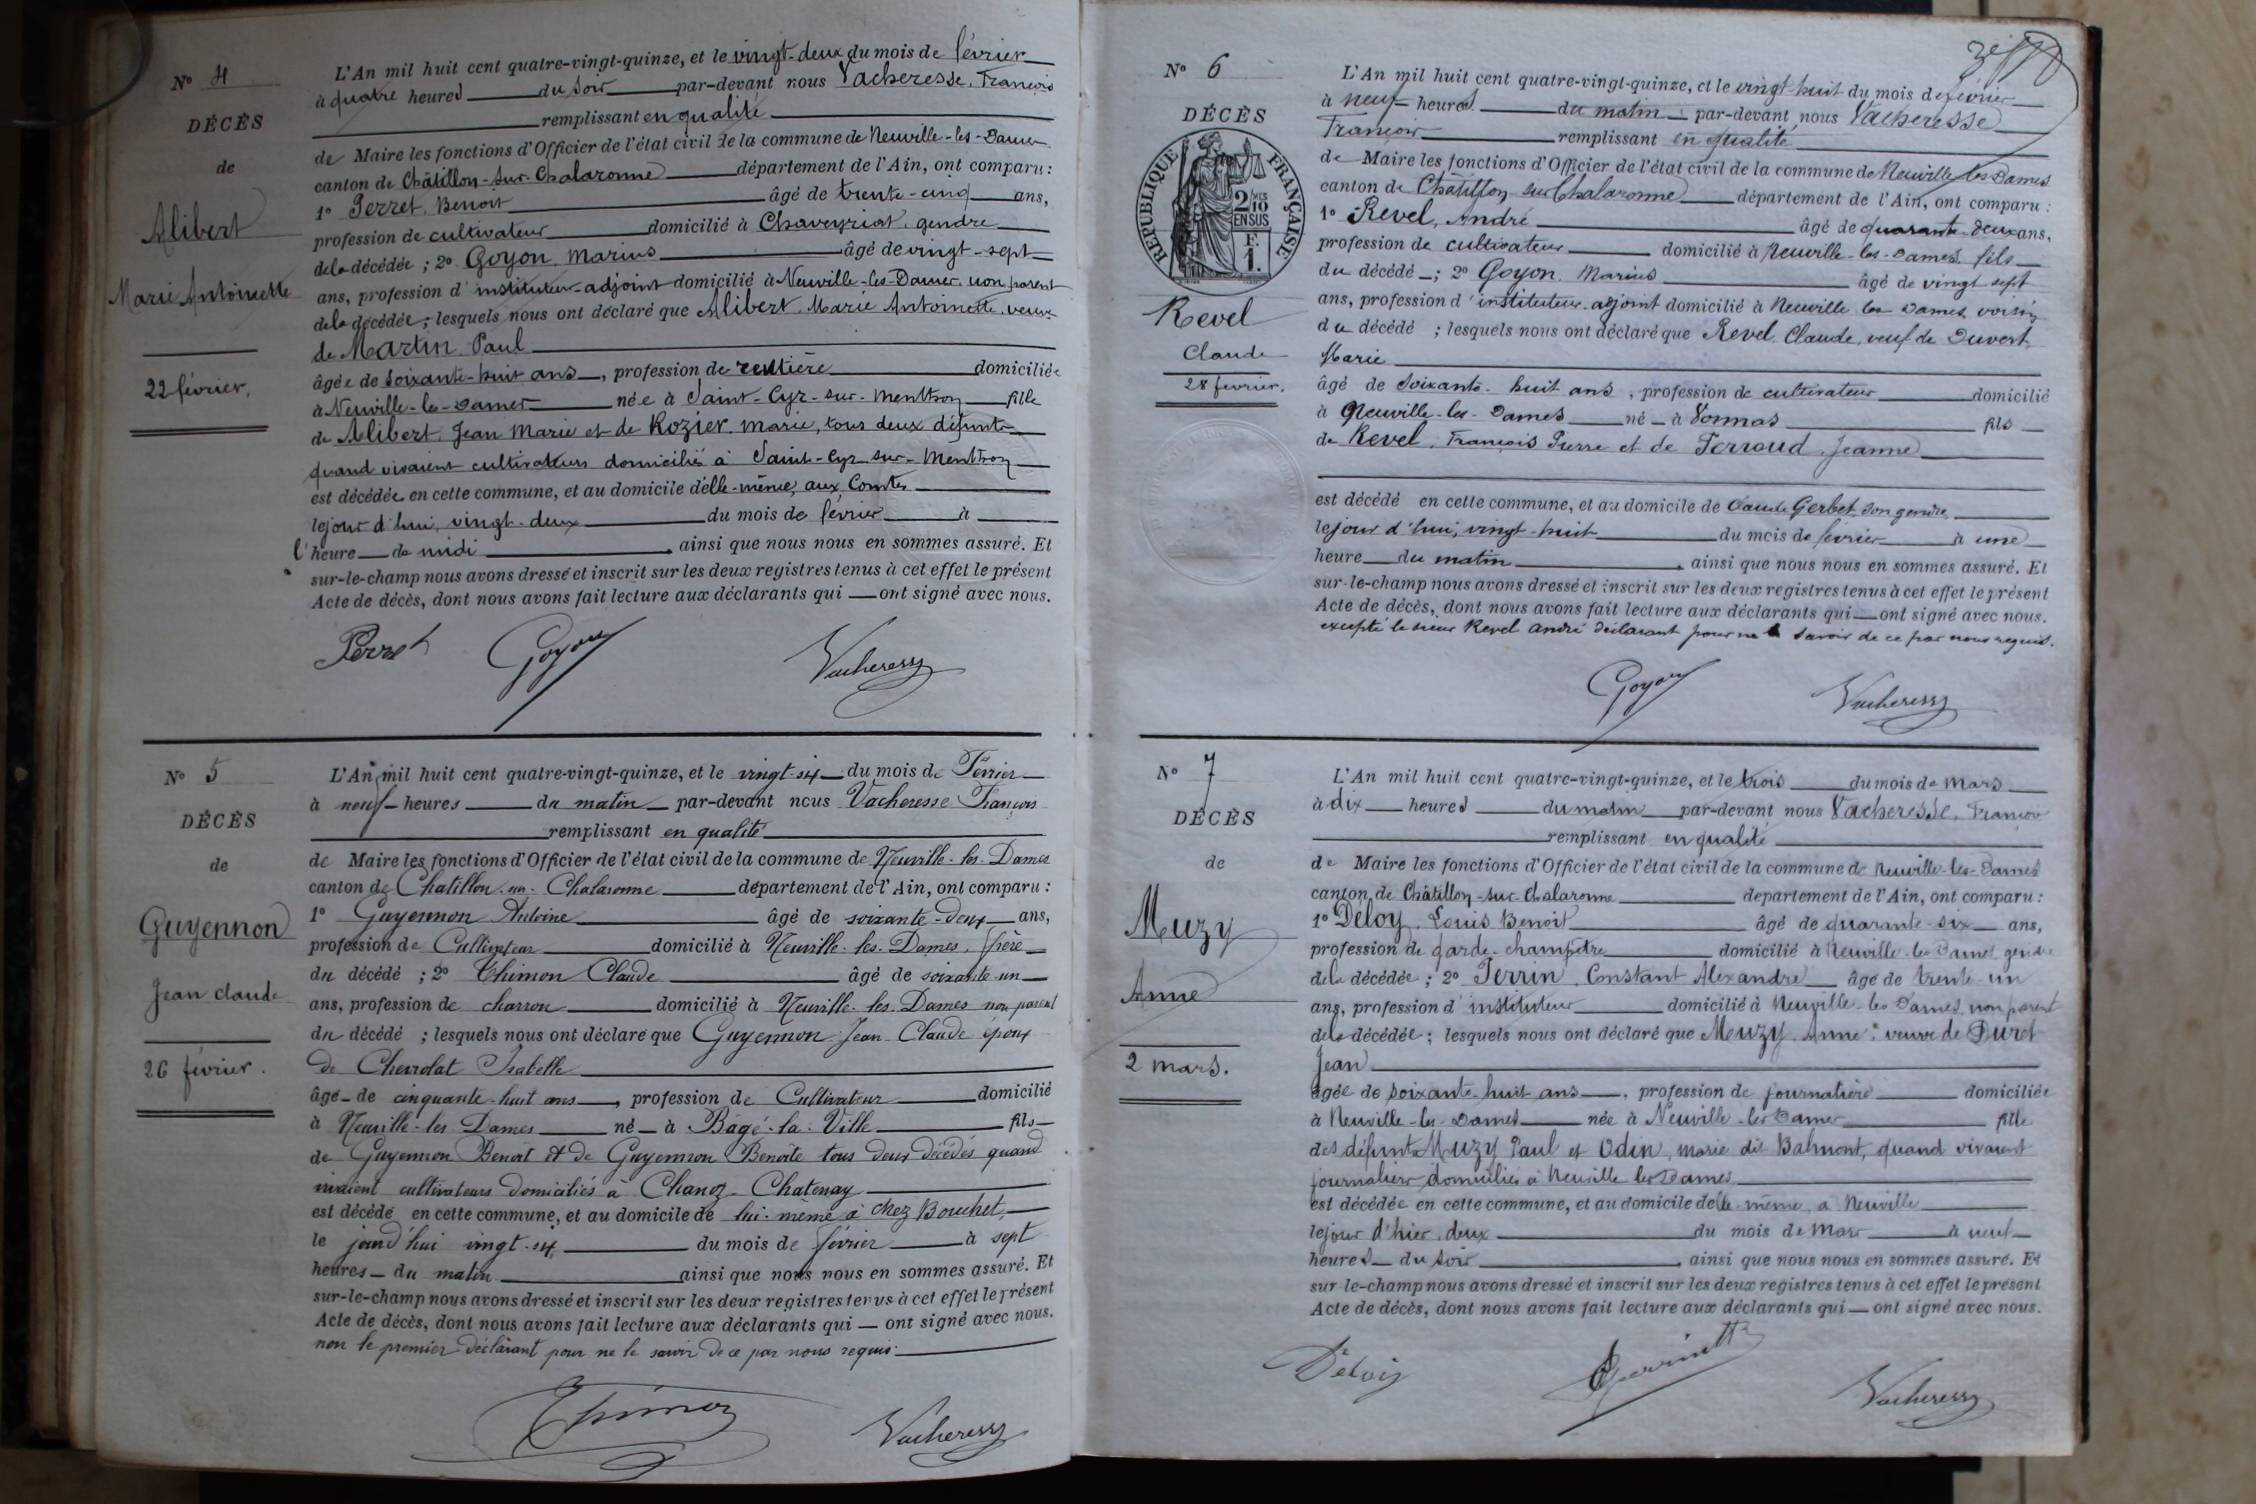 Nº 4
DÉCÈS
de
Alibert
Marie Antoinette
22 février.
L'An mil huit cent quatre-vingt-quinze, et le vingt-deux du mois de février
à quatre heures du soir par-devant nous Vacheresse, François
remplissant en qualité
de Maire les fonctions d'Officier de l'état civil de la commune de Neuville-les-Dames
canton de Châtillon-sur-Chalaronne département de l'Ain, ont comparu :
1º Perret, Benoit âgé de trente-cinq ans,
profession de cultivateur domicilié à Chaveyriat, gendre
de la décédée ; 2º Goyon, Marius âgé de vingt-sept
ans, profession d'instituteur-adjoint domicilié à Neuville-les-Dames non parent
de la décédée ; lesquels nous ont déclaré que Alibert, Marie Antoinette, veuve
de Martin Paul
âgée de soixante-huit ans, profession de rentière domiciliée
à Neuville-les-Dames née à Saint-Cyr-sur-Menthon fille
de Alibert, Jean Marie et de Rozier, Marie, tous deux défunts
quand vivaient cultivateurs domiciliés à Saint-Cyr-sur-Menthon
est décédée en cette commune, et au domicile d'elle-même, aux Comtes
le jour d'hui, vingt-deux du mois de février à
l'heure de midi ainsi que nous nous en sommes assuré. Et
sur-le-champ nous avons dressé et inscrit sur les deux registres tenus à cet effet le présent
Acte de décès, dont nous avons fait lecture aux déclarants qui ont signé avec nous.
Perret Goyon Vacheresse
Nº 5
DÉCÈS
de
Guyennon
Jean Claude
26 février.
L'An mil huit cent quatre-vingt-quinze, et le vingt-six du mois de Février
à neuf heures du matin par-devant nous Vacheresse François
remplissant en qualité
de Maire les fonctions d'Officier de l'état civil de la commune de Neuville-les-Dames
canton de Chatillon-sur-Chalaronne département de l'Ain, ont comparu :
1º Guyennon Antoine âgé de soixante-deux ans,
profession de Cultivateur domicilié à Neuville-les-Dames, frère
du décédé ; 2º Thimon Claude âgé de soixante-un
ans, profession de charron domicilié à Neuville-les-Dames non parent
du décédé ; lesquels nous ont déclaré que Guyennon Jean-Claude époux
de Chevrolat Isabelle
âgé de cinquante-huit ans, profession de Cultivateur domicilié
à Neuville-les-Dames né à Bâgé-la-Ville fils
de Guyennon Benoît et de Guyennon Benoîte tous deux décédés quand
vivaient cultivateurs domiciliés à Chanoz-Chatenay
est décédé en cette commune, et au domicile de lui-même à chez Bouchet,
le jourd'hui vingt-six du mois de février à sept
heures du matin ainsi que nous nous en sommes assuré. Et
sur-le-champ nous avons dressé et inscrit sur les deux registres tenus à cet effet le présent
Acte de décès, dont nous avons fait lecture aux déclarants qui ont signé avec nous.
non le premier déclarant pour ne le savoir de ce par nous requis.
Thimon Vacheresse
Nº 6
DÉCÈS
RÉPUBLIQUE FRANÇAISE
2/10
EN SUS
F.
1.
Revel
Claude
28 février.
L'An mil huit cent quatre-vingt-quinze, et le vingt-huit du mois de février
à neuf heures du matin par-devant nous Vacheresse
François remplissant en qualité
de Maire les fonctions d'Officier de l'état civil de la commune de Neuville-les-Dames
canton de Châtillon-sur-Chalaronne département de l'Ain, ont comparu :
1º Revel, André âgé de quarante-deux ans,
profession de cultivateur domicilié à Neuville-les-Dames, fils
du décédé ; 2º Goyon, Marius âgé de vingt-sept
ans, profession d'instituteur-adjoint domicilié à Neuville-les-Dames, voisin
du décédé ; lesquels nous ont déclaré que Revel, Claude, veuf de Duvert
Marie
âgé de soixante-huit ans, profession de cultivateur domicilié
à Neuville-les-Dames né à Vonnas fils
de Revel, François Pierre et de Ferroud, Jeanne
est décédé en cette commune, et au domicile de Claude Gerbet, son gendre,
le jour d'hui, vingt-huit du mois de février à une
heure du matin ainsi que nous nous en sommes assuré. Et
sur-le-champ nous avons dressé et inscrit sur les deux registres tenus à cet effet le présent
Acte de décès, dont nous avons fait lecture aux déclarants qui ont signé avec nous.
excepté le sieur Revel André déclarant pour ne savoir de ce par nous requis.
Goyon Vacheresse
Nº 7
DÉCÈS
de
Muzy
Anne
2 mars.
L'An mil huit cent quatre-vingt-quinze, et le trois du mois de Mars
à dix heures du matin par-devant nous Vacheresse, François
remplissant en qualité
de Maire les fonctions d'Officier de l'état civil de la commune de Neuville-les-Dames
canton de Châtillon-sur-Chalaronne département de l'Ain, ont comparu :
1º Deloy, Louis Benoit âgé de quarante-six ans,
profession de garde-champêtre domicilié à Neuville-les-Dames gendre
de la décédée ; 2º Perrin, Constant Alexandre âgé de trente-un
ans, profession d'instituteur domicilié à Neuville-les-Dames, non parent
de la décédée ; lesquels nous ont déclaré que Muzy, Anne, veuve de Duret
Jean
âgée de soixante-huit ans, profession de journalière domiciliée
à Neuville-les-Dames née à Neuville-les-Dames fille
des défunts Muzy Paul et Odin, Marie dit Balmont, quand vivaient
journaliers domiciliés à Neuville les Dames
est décédée en cette commune, et au domicile d'elle-même, à Neuville
le jour d'hier, deux du mois de Mars à neuf
heures du soir ainsi que nous nous en sommes assuré. Et
sur-le-champ nous avons dressé et inscrit sur les deux registres tenus à cet effet le présent
Acte de décès, dont nous avons fait lecture aux déclarants qui ont signé avec nous.
Vacheresse